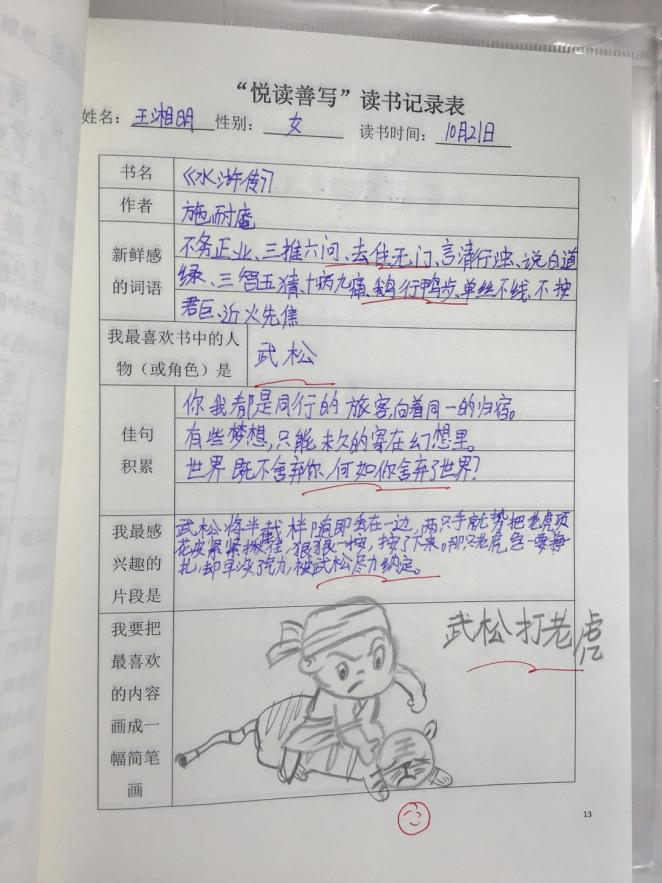 “悦读善写”读书记录表
姓名：王湘明 性别：女 读书时间：10月21日
书名 《水浒传》
作者 施耐庵
新鲜感的词语 不务正业、三推六问、去住无门、言清行浊、说白道
绿、三智五猜、十病九痛、鹅行鸭步、单丝不线、不按
君臣、近火先焦
我最喜欢书中的人物（或角色）是 武松
佳句积累 你我都是同行的旅客,向着同一的归宿。
有些梦想,只能永久的寄在幻想里。
世界既不舍弃你,何如你舍弃了世界?
我最感兴趣的片段是 武松将半截棒随即丢在一边,两只手就势把老虎顶
花皮紧紧揪住,狠狠一按,按了下来。那只老虎
扎,却早没了气力,被武松尽力纳定。
我要把最喜欢的内容画成一幅简笔画
武松打老虎
王
13